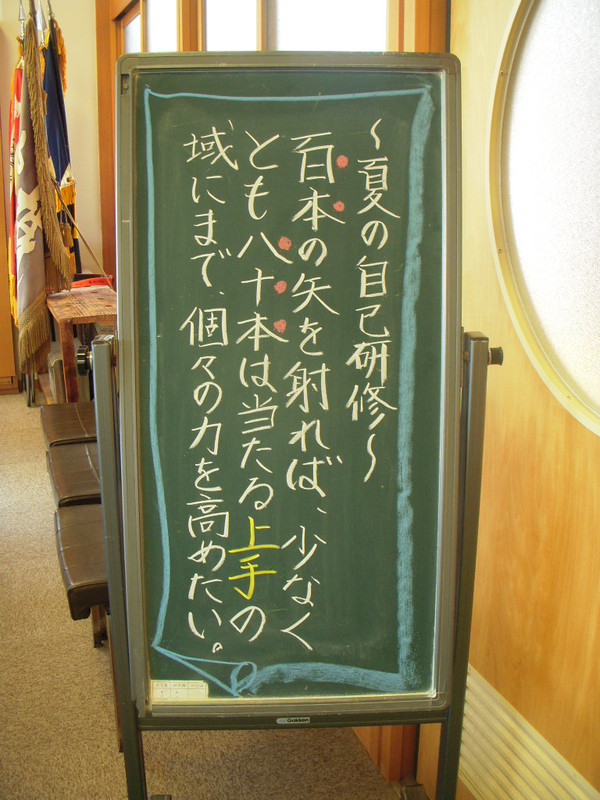 ～夏の自己研修～
百本の矢を射れば、少なく
とも八十本は当たる上手の
域にまで、個々の力を高めたい。
Gakken